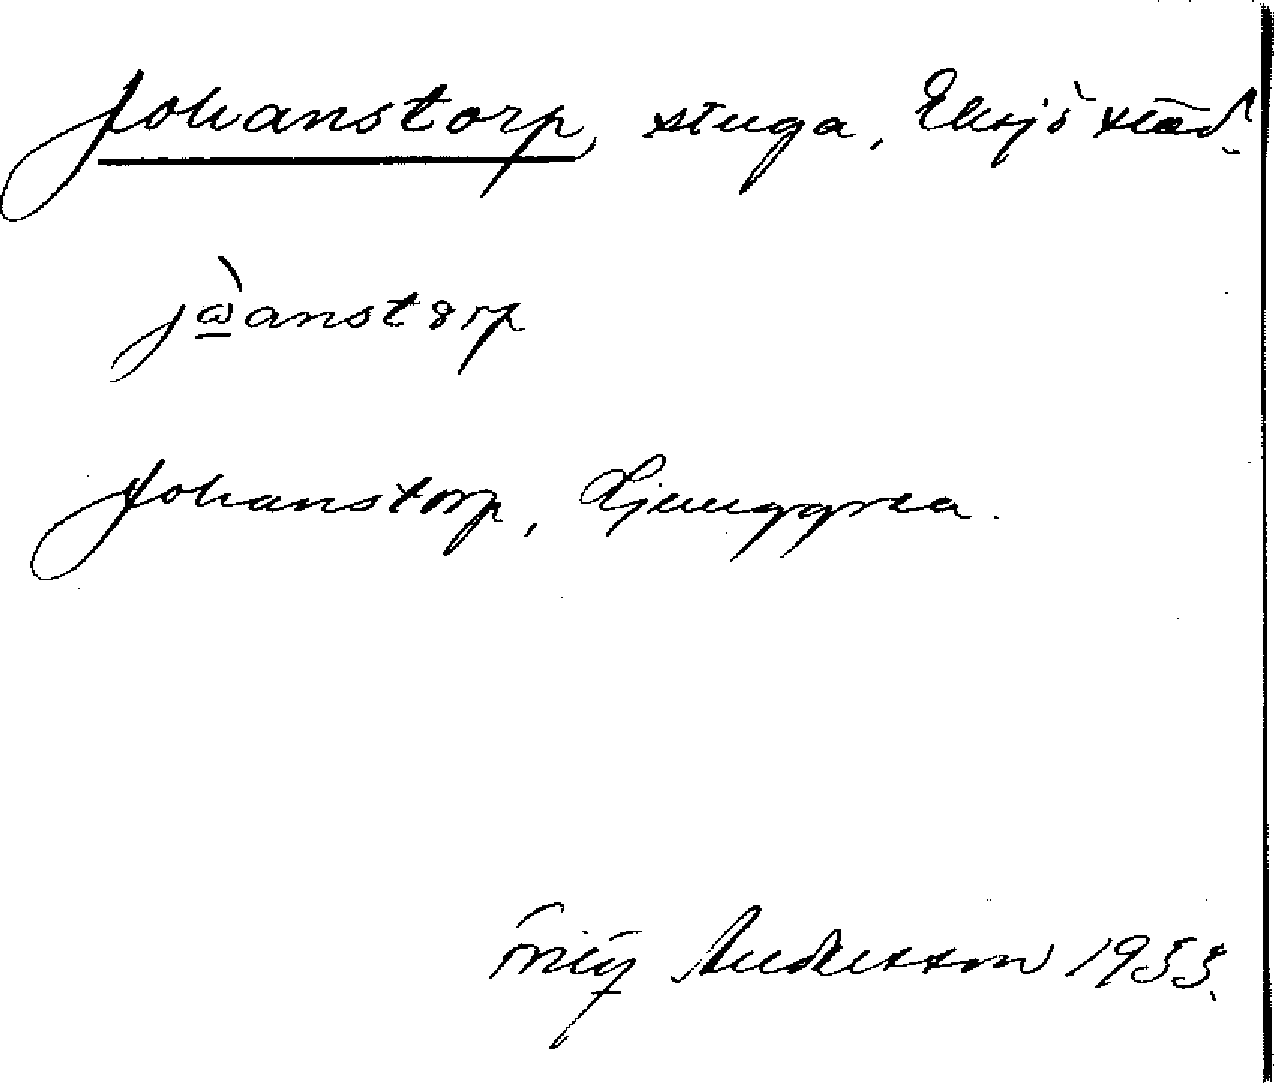 Johanstorp, stuga, Eksjö stad.
jὼ̲anstɜrp
Johanstorp, Ljunggrea.
Andersson 1933.